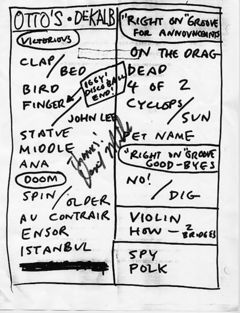 OTTO'S · DEKALB
VICTORIOUS
CLAP/BED
BIRD
FINGER
IGGY! DISCO BALL END!
JOHN LEE
STATUE
MIDDLE
ANA
DOOM
SPIN/OLDER
AU CONTRAIR
ENSOR
ISTANBUL
"RIGHT ON" GROOVE
FOR ANNOUNCMENTS
ON THE DRAG
DEAD
4 OF 2
CYCLOPS/SUN
PET NAME
"RIGHT ON" GROOVE
GOOD-BYES
NO!/DIG
VIOLIN
HOW - 2 BRIDGES
SPY
POLK